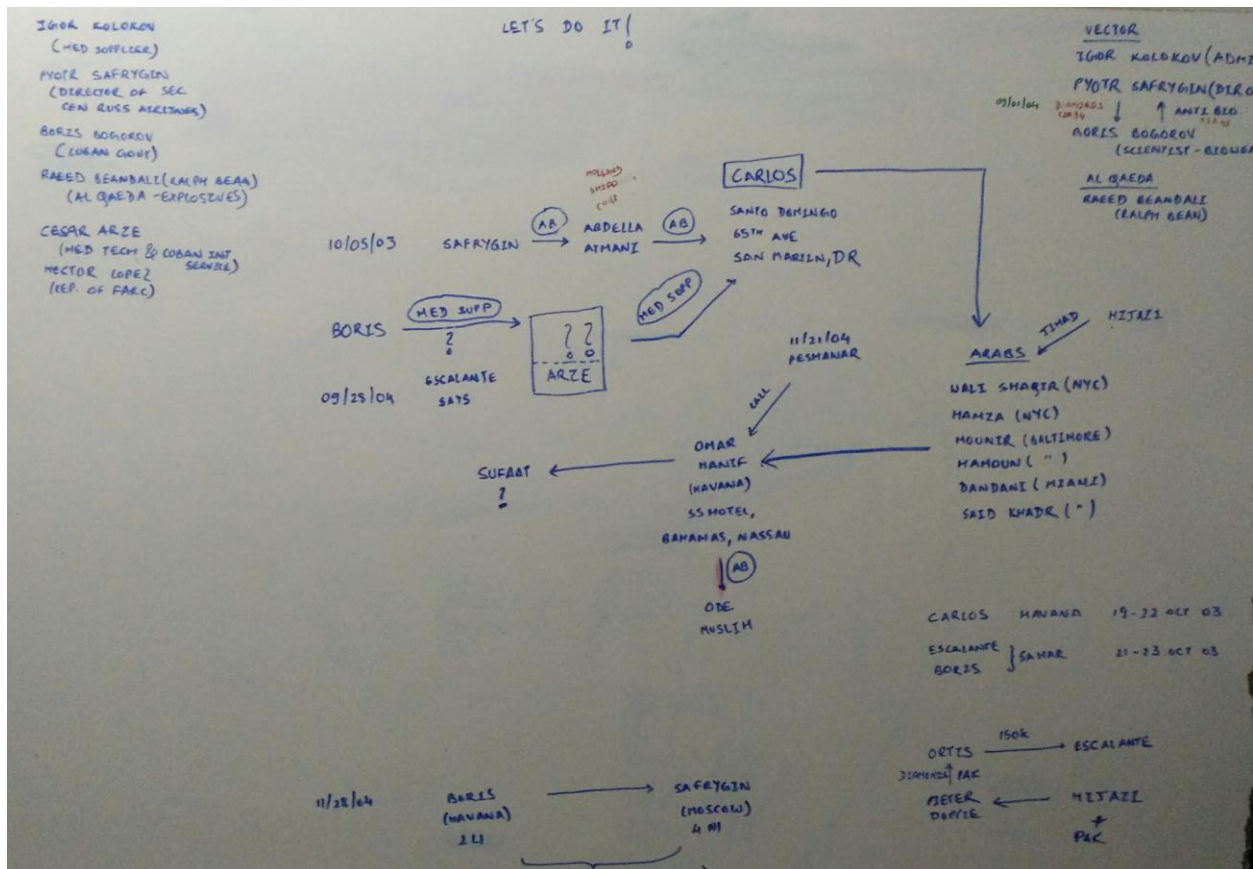 LET'S DO IT!
IGOR KOLOKOV
(MED SUPPLIER)
PYOTR SAFRYGIN
(DIRECTOR OF SEC
CEN RUSS AIRLINES)
BORIS BOGOROV
(CUBAN GOVT)
RAEED BEANDALI (RALPH BEAN)
(AL QAEDA - EXPLOSIVES)
CESAR ARZE
(MED TECH & CUBAN INT
SERVICE)
HECTOR LOPEZ
(REP. OF FARC)
VECTOR
IGOR KOLOKOV (ADMI
PYOTR SAFRYGIN (DIRO
09/01/04 DIAMONDS ANTI BIO
BORIS BOGOROV
(SCIENTIST - BIOWEA
AL QAEDA
RAEED BEANDALI
(RALPH BEAN)
HOLLAND
10/05/03 SAFRYGIN AB ABDELLA
ATMANI
AB
CARLOS
SANTO DOMINGO
65TH AVE
SAN MARTIN, DR
BORIS MED SUPP
?
??
ARZE
MED SUPP
09/28/04 ESCALANTE
SAYS
11/21/04
PESHAWAR
CALL
JIHAD HIJAZI
ARABS
WALI SHAQIR (NYC)
HAMZA (NYC)
MOUNIR (BALTIMORE)
MAMOUN ( " )
DANDANI (MIAMI)
SAID KHADR ( " )
OMAR
HANIF
(HAVANA)
SS MOTEL,
BAHAMAS, NASSAU
SUFAAT
?
AB
ODE
MUSLIM
CARLOS HAVANA 19-22 OCT 03
ESCALANTE
BORIS } SAHAR 21-23 OCT 03
ORTIS 150K ESCALANTE
DIAMONDS PAK
PIETER
DOPPLE
HIJAZI
+
PAK
11/28/04 BORIS
(HAVANA)
SAFRYGIN
(MOSCOW)